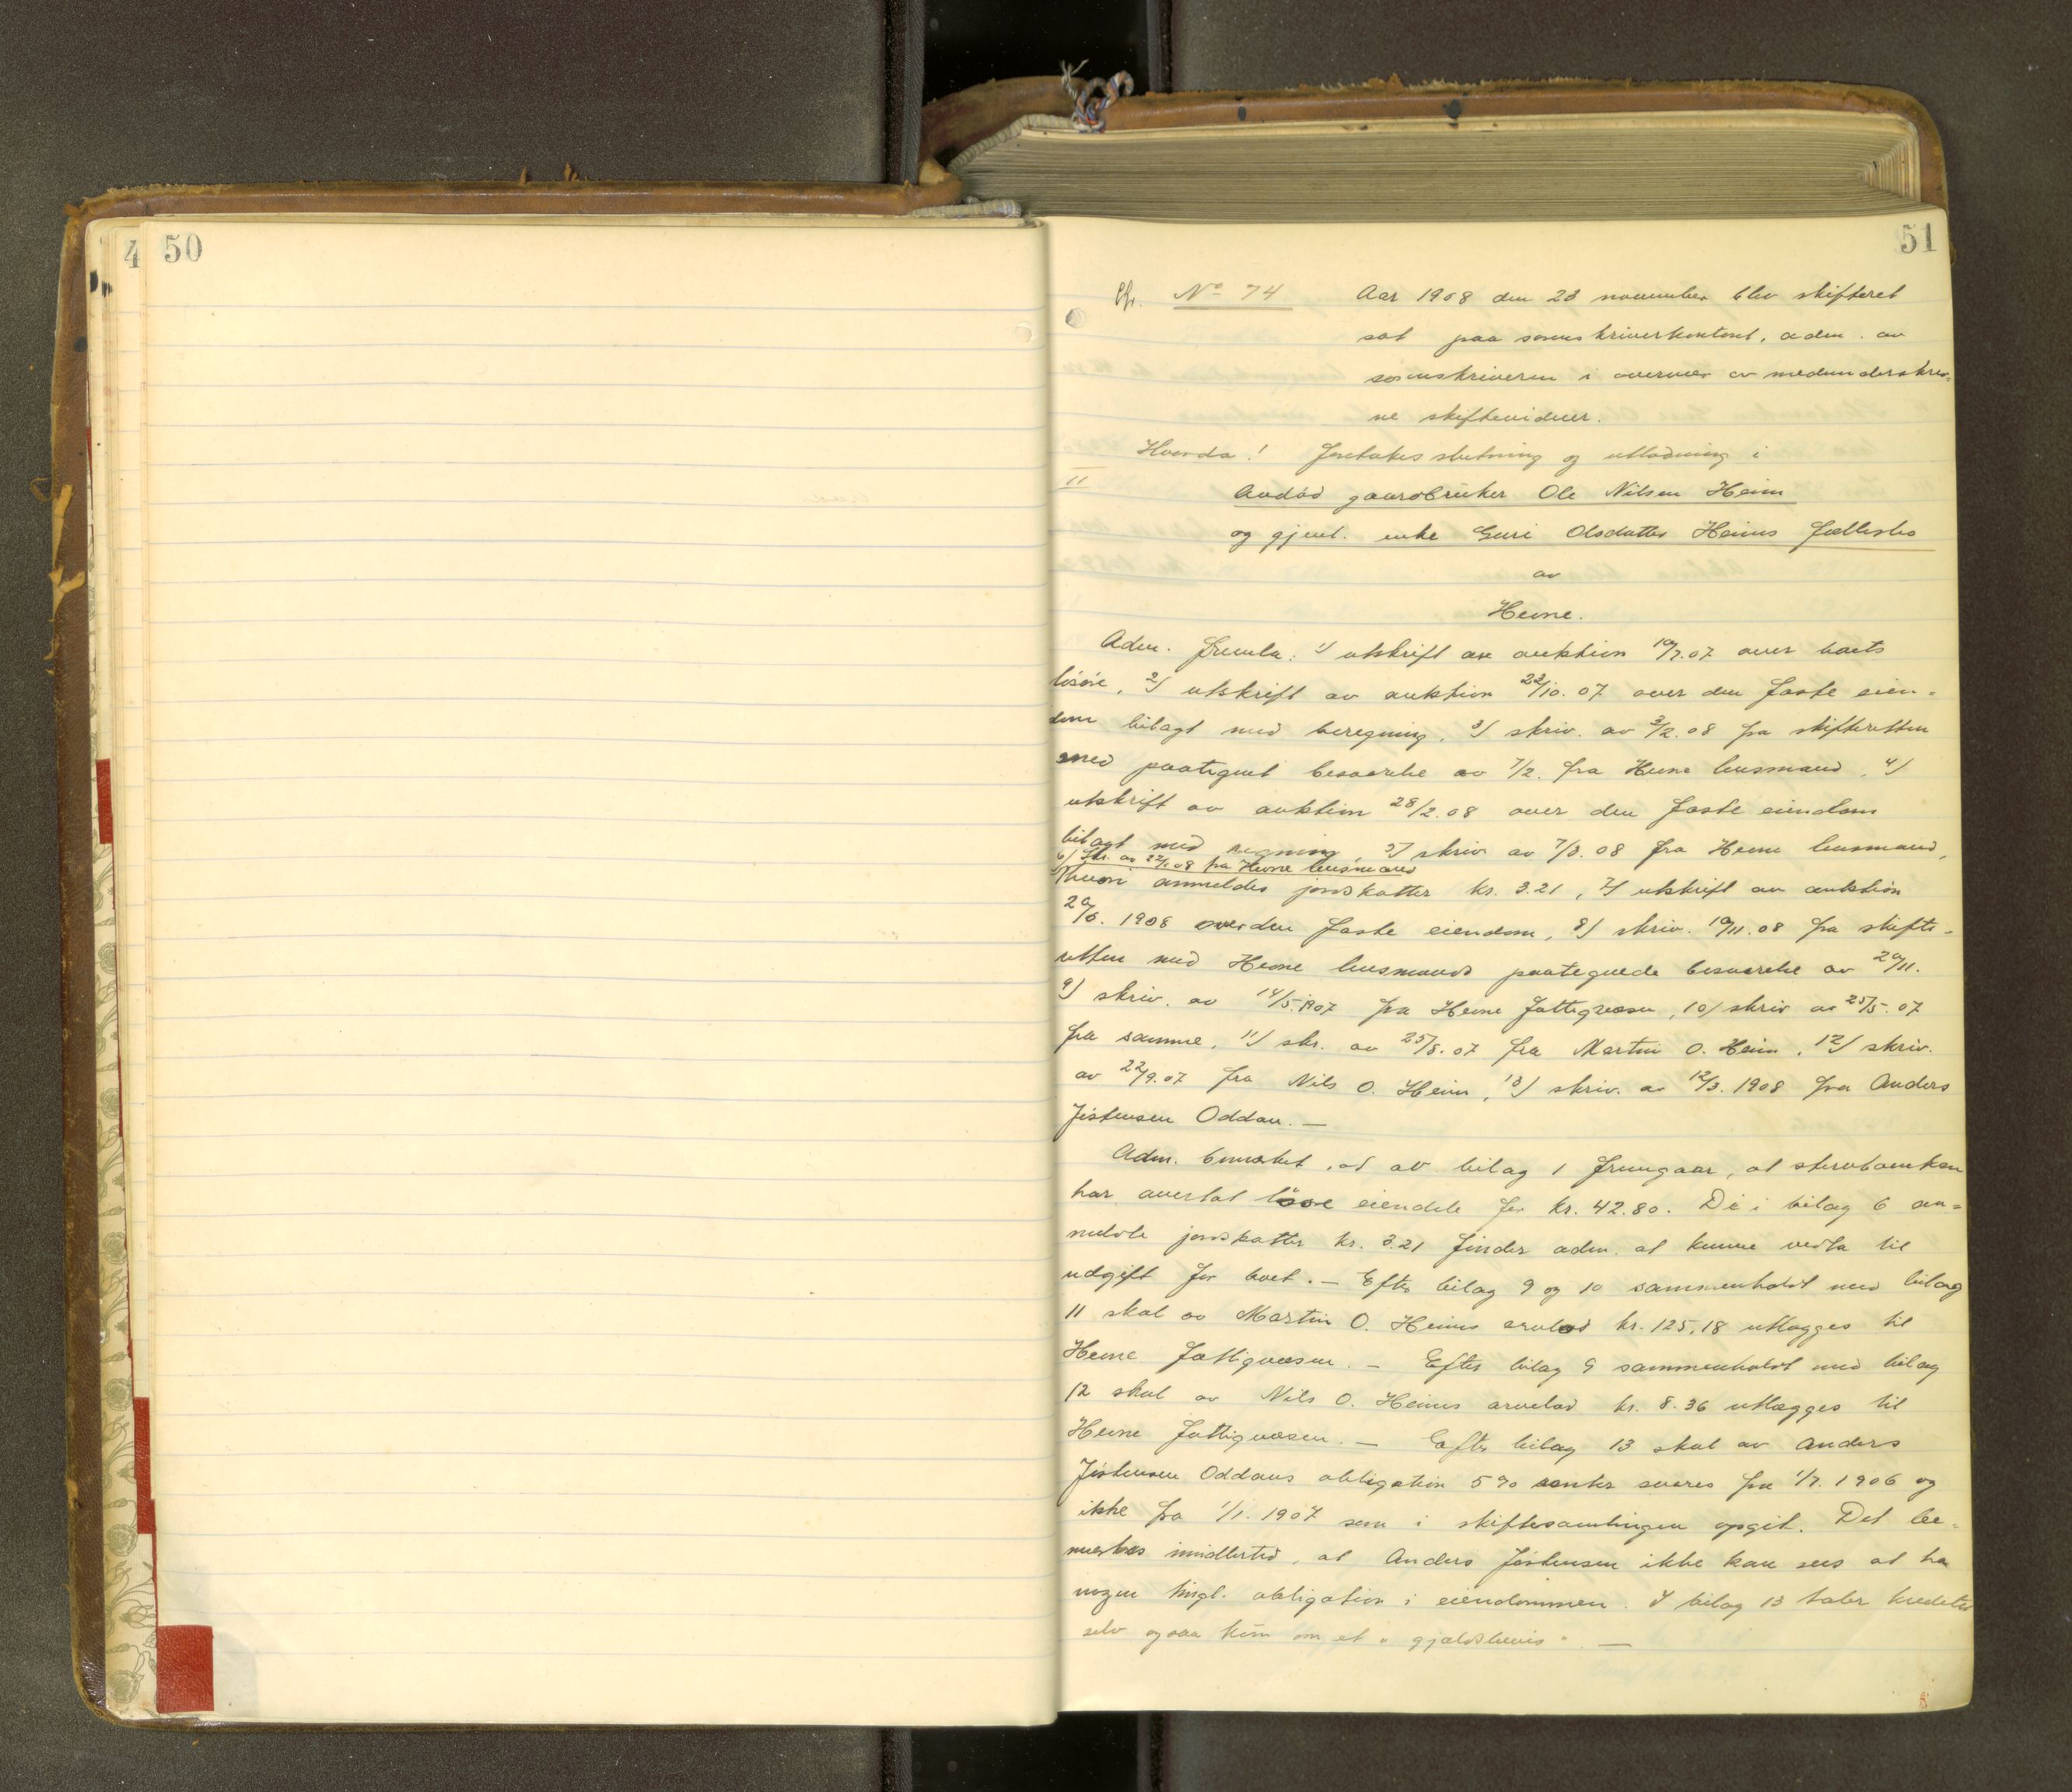 4 50
51
Cfr. No 74 Aar 1908 den 23 november blev skifteret
sat paa sorenskriverkontoret, adm. av
sorenskriveren i overvær av medunderskrev=
ne skiftevidner.
Hvorda! Foretokes slutning og utlodning i
11
Avdød gaardbruker Ole Nilsen Heim
og gjenl. enke Guri Olsdatter Heims fællesbo
av
Hevne.
Adm. fremla: 1) utskrift av auktion 19/7.07 over boets
løsøre, 2) utskrift av auktion 22/10.07 over den faste eien-
dom bilagt med beregning, 3) skriv. av 3/2.08 fra skifteretten
med paategnet besvarelse av 7/2. fra Hevne lensmand, 4)
utskrift av auktion 28/2.08 over den faste eiendom
bilagt med regning, 5) skriv av 7/3.08 fra Hevne lensmand,
6) Skr. av 22/1.08 fra Hevne lensmand
hvori anmeldes jordskatter kr. 3.21, 7) utskrift av auktion
20/6. 1908 over den faste eiendom, 8) skriv. 19/11.08 fra skifte-
retten med Hevne lensmands paategnede besvarelse av 20/11.
9) skriv. av 14/5.1907 fra Hevne Fattigvæsen, 10) skriv av 25/5.07
fra samme, 11) skr. av 25/8.07 fra Martin O. Heim, 12) skriv.
av 22/9.07 fra Nils O. Heim, 13) skriv. av 12/3. 1908 fra Anders
Jistensen Oddan. —
Adm. bemerket, at av bilag 1 fremgaar, at stervboenken
har overtat løsøre eiendele for kr. 42.80. De i bilag 6 an=
meldte jordskatter kr. 3.21 finder adm. at kunne vedta til
udgift for boet. — Efter bilag 9 og 10 sammenholdt med bilag
11 skal av Martin O. Heims arvelod kr. 125,18 utlægges til
Hevne Fattigvæsen. — Efter bilag 9 sammenholdt med bilag
12 skal av Nils O. Heims arvelod kr. 8.36 utlægges til
Hevne Fattigvæsen. — Efter bilag 13 skal av Anders
Jistensen Oddans obligation 5 % renter svares fra 1/7. 1906 og
ikke fra 1/1. 1907 som i skiftesamlingen opgit. Det be=
merkes imidlertid, at Anders Jistensen ikke kan sees at ha
nogen tingl. obligation i eiendommen. I bilag 13 taler kreditor
selv ogsaa kun om et "gjældsbevis". —